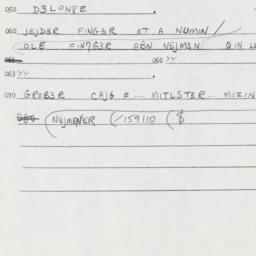 050 DƎLONȢE .
060 JEJDƎR FINGƎR OT A NUMIN /
OLE FINTGƎR OBN NEJMƎN QIN
062 YY
063 YY .
070 GROBƎR CAJG F .... MITLSTƎR ... MIZIN
(NEJMENER (/159110 ($